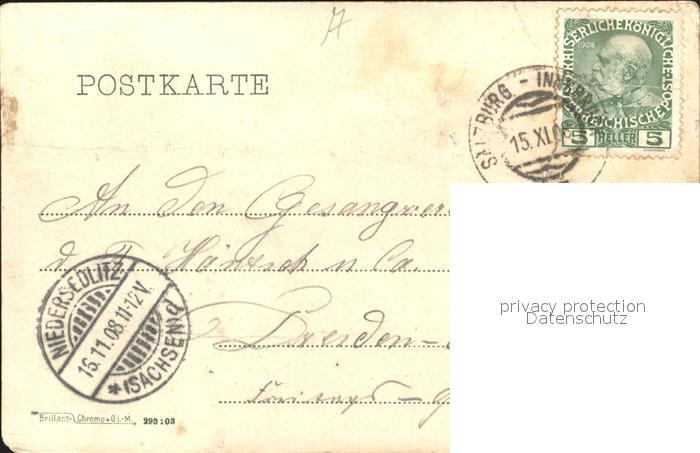 POSTKARTE
KAISERLICHE KÖNIGLICHE
ÖSTERREICHISCHE POST
1908
5 HELLER 5
SALZBURG - INNSBRUCK
15.XI.08
An den Gesangver
d. F. Häntsch u Ca.
Dresden-
NIEDERSEDLITZ
16.11.08.11-12V.
*(SACHSEN)d
Brillant-Chromo O.L-M. 293:03
privacy protection
Datenschutz